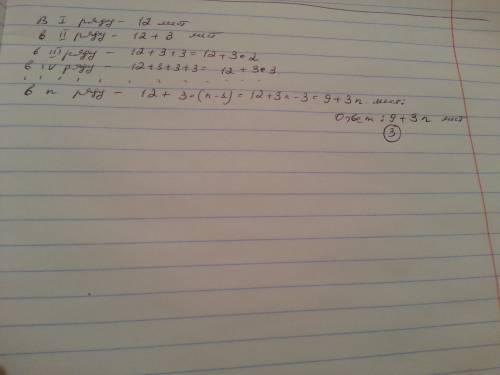 В I ряду - 12 мест
в II ряду - 12 + 3 мест
в III ряду - 12+3+3 = 12+3•2
в IV ряду - 12+3+3+3 = 12+3•3
. . . . . . . . . . . .
в n ряду - 12 + 3•(n-1) = 12+3n-3 = 9+3n мест.
Ответ: 9+3n мест
3